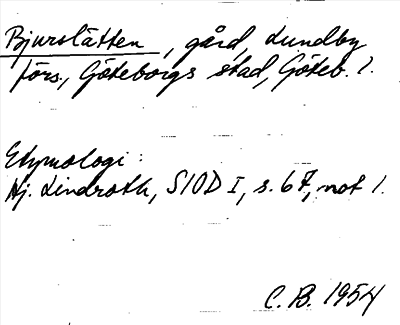 Bjurslätten, gård, Lundby
förs., Göteborgs stad, Göteb. l.
Etymologi:
Hj. Lindroth, SIOD I, s. 67, not 1.
C. B. 1954